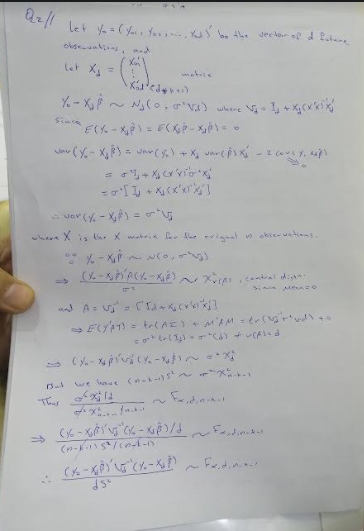 Q2//1
Let y₀ = (y₀₁, y₀₂, ..., y₀d)' be the vector of d future
observations, and
Let X_d = (x'₀₁ ⋮ x'₀d) d*(k+1) matrix
y₀ - X_d β̂ ~ N_d (0, σ²V_d) where V_d = I_d + X_d(X'X)⁻¹X'_d
since
E(y₀ - X_d β̂) = E(X_d β - X_d β̂) = 0
var(y₀ - X_d β̂) = var(y₀) + X_d var(β̂) X'_d - 2 cov(y₀, X_d β̂)
= σ²I_d + X_d(X'X)⁻¹σ²X'_d
= σ²[I_d + X_d(X'X)⁻¹X'_d]
∴ var(y₀ - X_d β̂) = σ²V_d
where X is the X matrix for the original n observations.
∵ y₀ - X_d β̂ ~ N(0, σ²V_d)
⇒ (y₀ - X_d β̂)'A(y₀ - X_d β̂) / σ² ~ χ²r(A), central distn. since mean=0
and A = V_d⁻¹ = [I_d + X_d(X'X)⁻¹X'_d]
⇒ E(Y'AY) = tr(AΣ) + M'AM = tr(V_d⁻¹σ²V_d) + 0
= σ² tr(I_d) = σ²(d) + r(A) = d
⇒ (y₀ - X_d β̂)'V_d⁻¹(y₀ - X_d β̂) ~ σ²χ²_d
But we have (n-k-1)S² ~ σ²χ²_n-k-1
Thus σ²χ²_d/d / σ²χ²_n-k-1/n-k-1 ~ F_α,d,n-k-1
⇒ (y₀ - X_d β̂)'V_d⁻¹(y₀ - X_d β̂)/d / (n-k-1)S²/(n-k-1) ~ F_α,d,n-k-1
∴ (y₀ - X_d β̂)'V_d⁻¹(y₀ - X_d β̂) / dS² ~ F_α,d,n-k-1